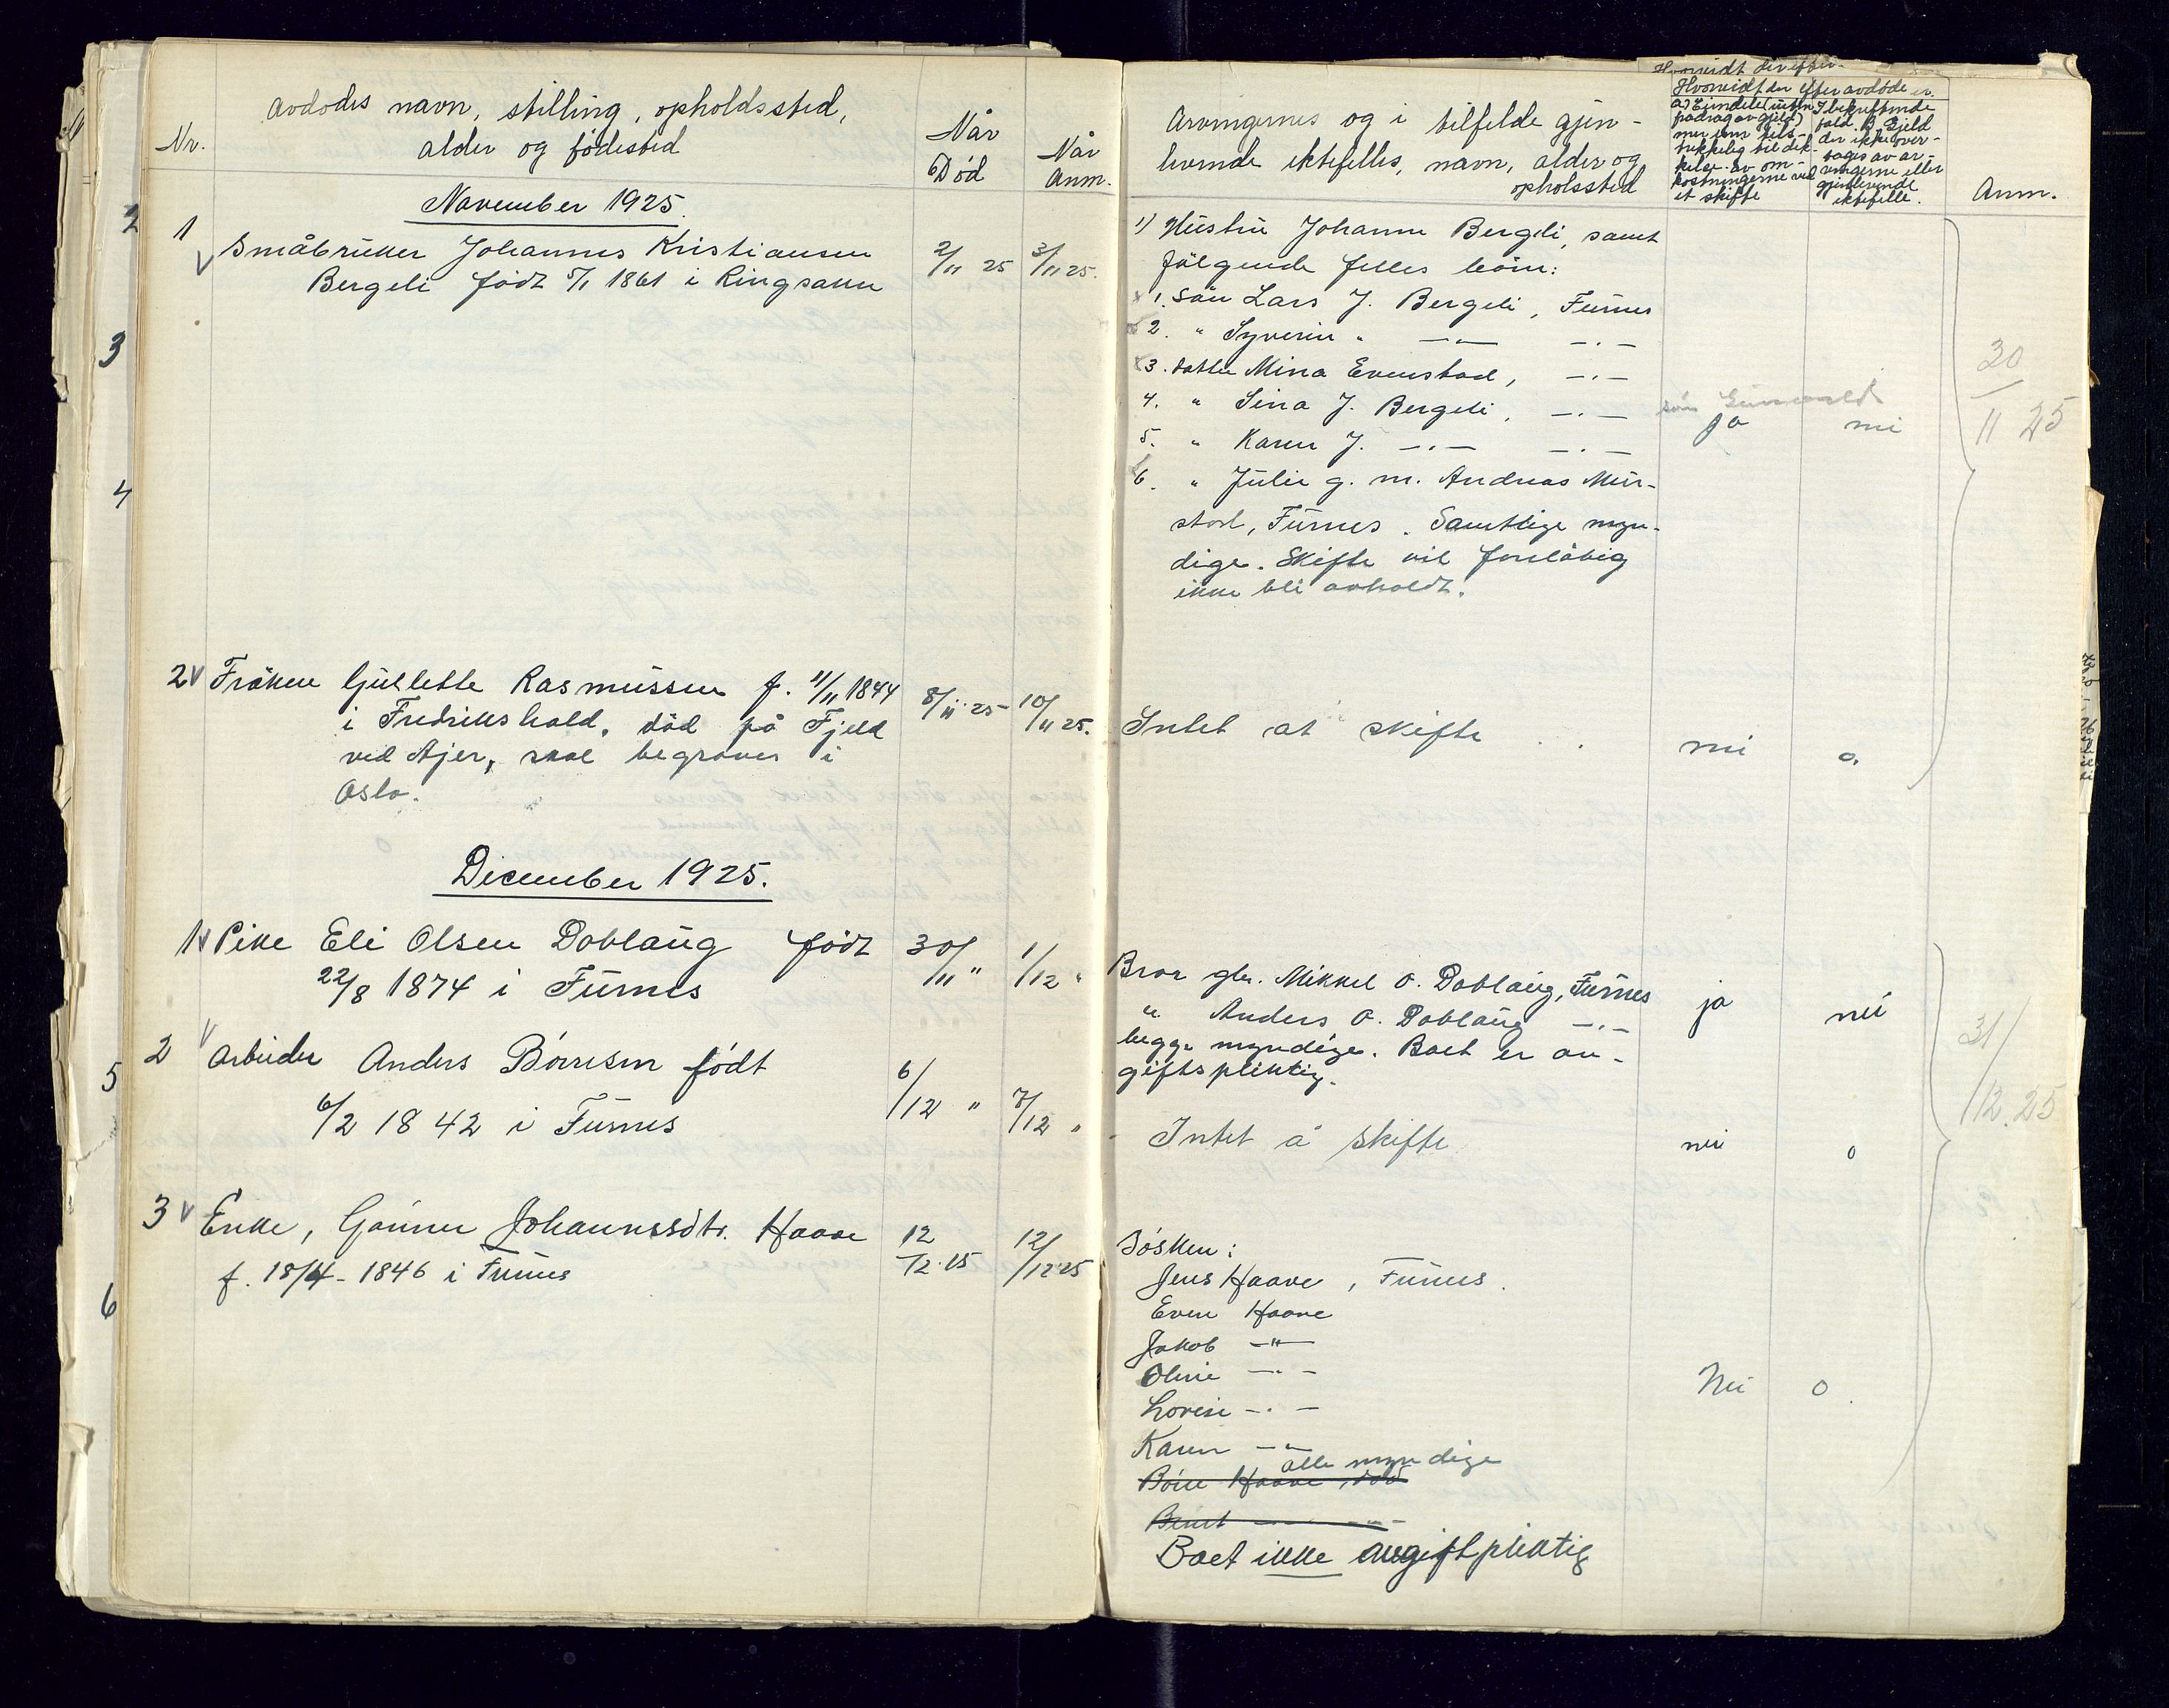 Nr.
Avdødes navn, stilling, opholdssted,
alder og fødested
Når
Død
Når
Anm.
November 1925.
1
Småbruker Johannes Kristiansen
Bergeli født 5/1 1861 i Ringsaker
2/11 25
3/11 25.
2 Frøken Gjulette Rasmussen f. 11/11 1844
i Fredrikshald, død på Fjeld
ved Ajer, skal begraves i
Oslo.
8/11 25
10/11 25.
December 1925.
1 Pike Eli Olsen Doblaug født
22/8 1874 i Furnes
30/11 "
1/12 "
2 Arbeider Anders Børresen født
6/2 1842 i Furnes
6/12 "
7/12 "
3 Enke, Gønner Johannesdtr. Haave
f. 18/4 - 1846 i Furnes
12/12 25
2
3
4
5
6
Arvingernes og i tilfelde gjen-
levende ektefelles, navn, alder og
opholssted
Hvorvidt der efter
Hvorvidt der efter avdøde er.
a) Eiendele (uten
fradrag av gjeld)
mer enn tils-
trekkelig til dek-
kelse av om-
kostningerne ved
et skifte
I bekreftende
fald. B. Gjeld
der ikke over-
tages av ar-
vingerne eller
gjenlevende
ektefelle.
Anm.
1) Hustru Johanne Bergeli, samt
følgende felles børn:
1. søn Lars J. Bergeli, Furnes
2. " Syverin " —"— —"—
3. datter Mina Evenstad, —"—
4. " Sina J. Bergeli, —"—
5. " Karen J. —"— —"—
6. " Julie g. m. Andreas Mur-
stad, Furnes. Samtlige myn-
dige. Skifte vil foreløbig
ikke bli avholdt.
søn
ja
nei
30/11 25
Intet at skifte
nei
o.
Bror gbr. Mikkel O. Doblaug, Furnes
" Anders O. Doblaug —"—
begge myndige. Boet er av-
giftspliktig.
ja
nei
31/12.25
Intet å skifte
nei
o
Søsken:
Jens Haave, Furnes.
Even Haave
Jakob —"—
Oline —"—
Lovise —"—
Karen —"—
alle myndige
Børre Haave død
Bernt
Boet ikke avgiftpliktig
Nei
o